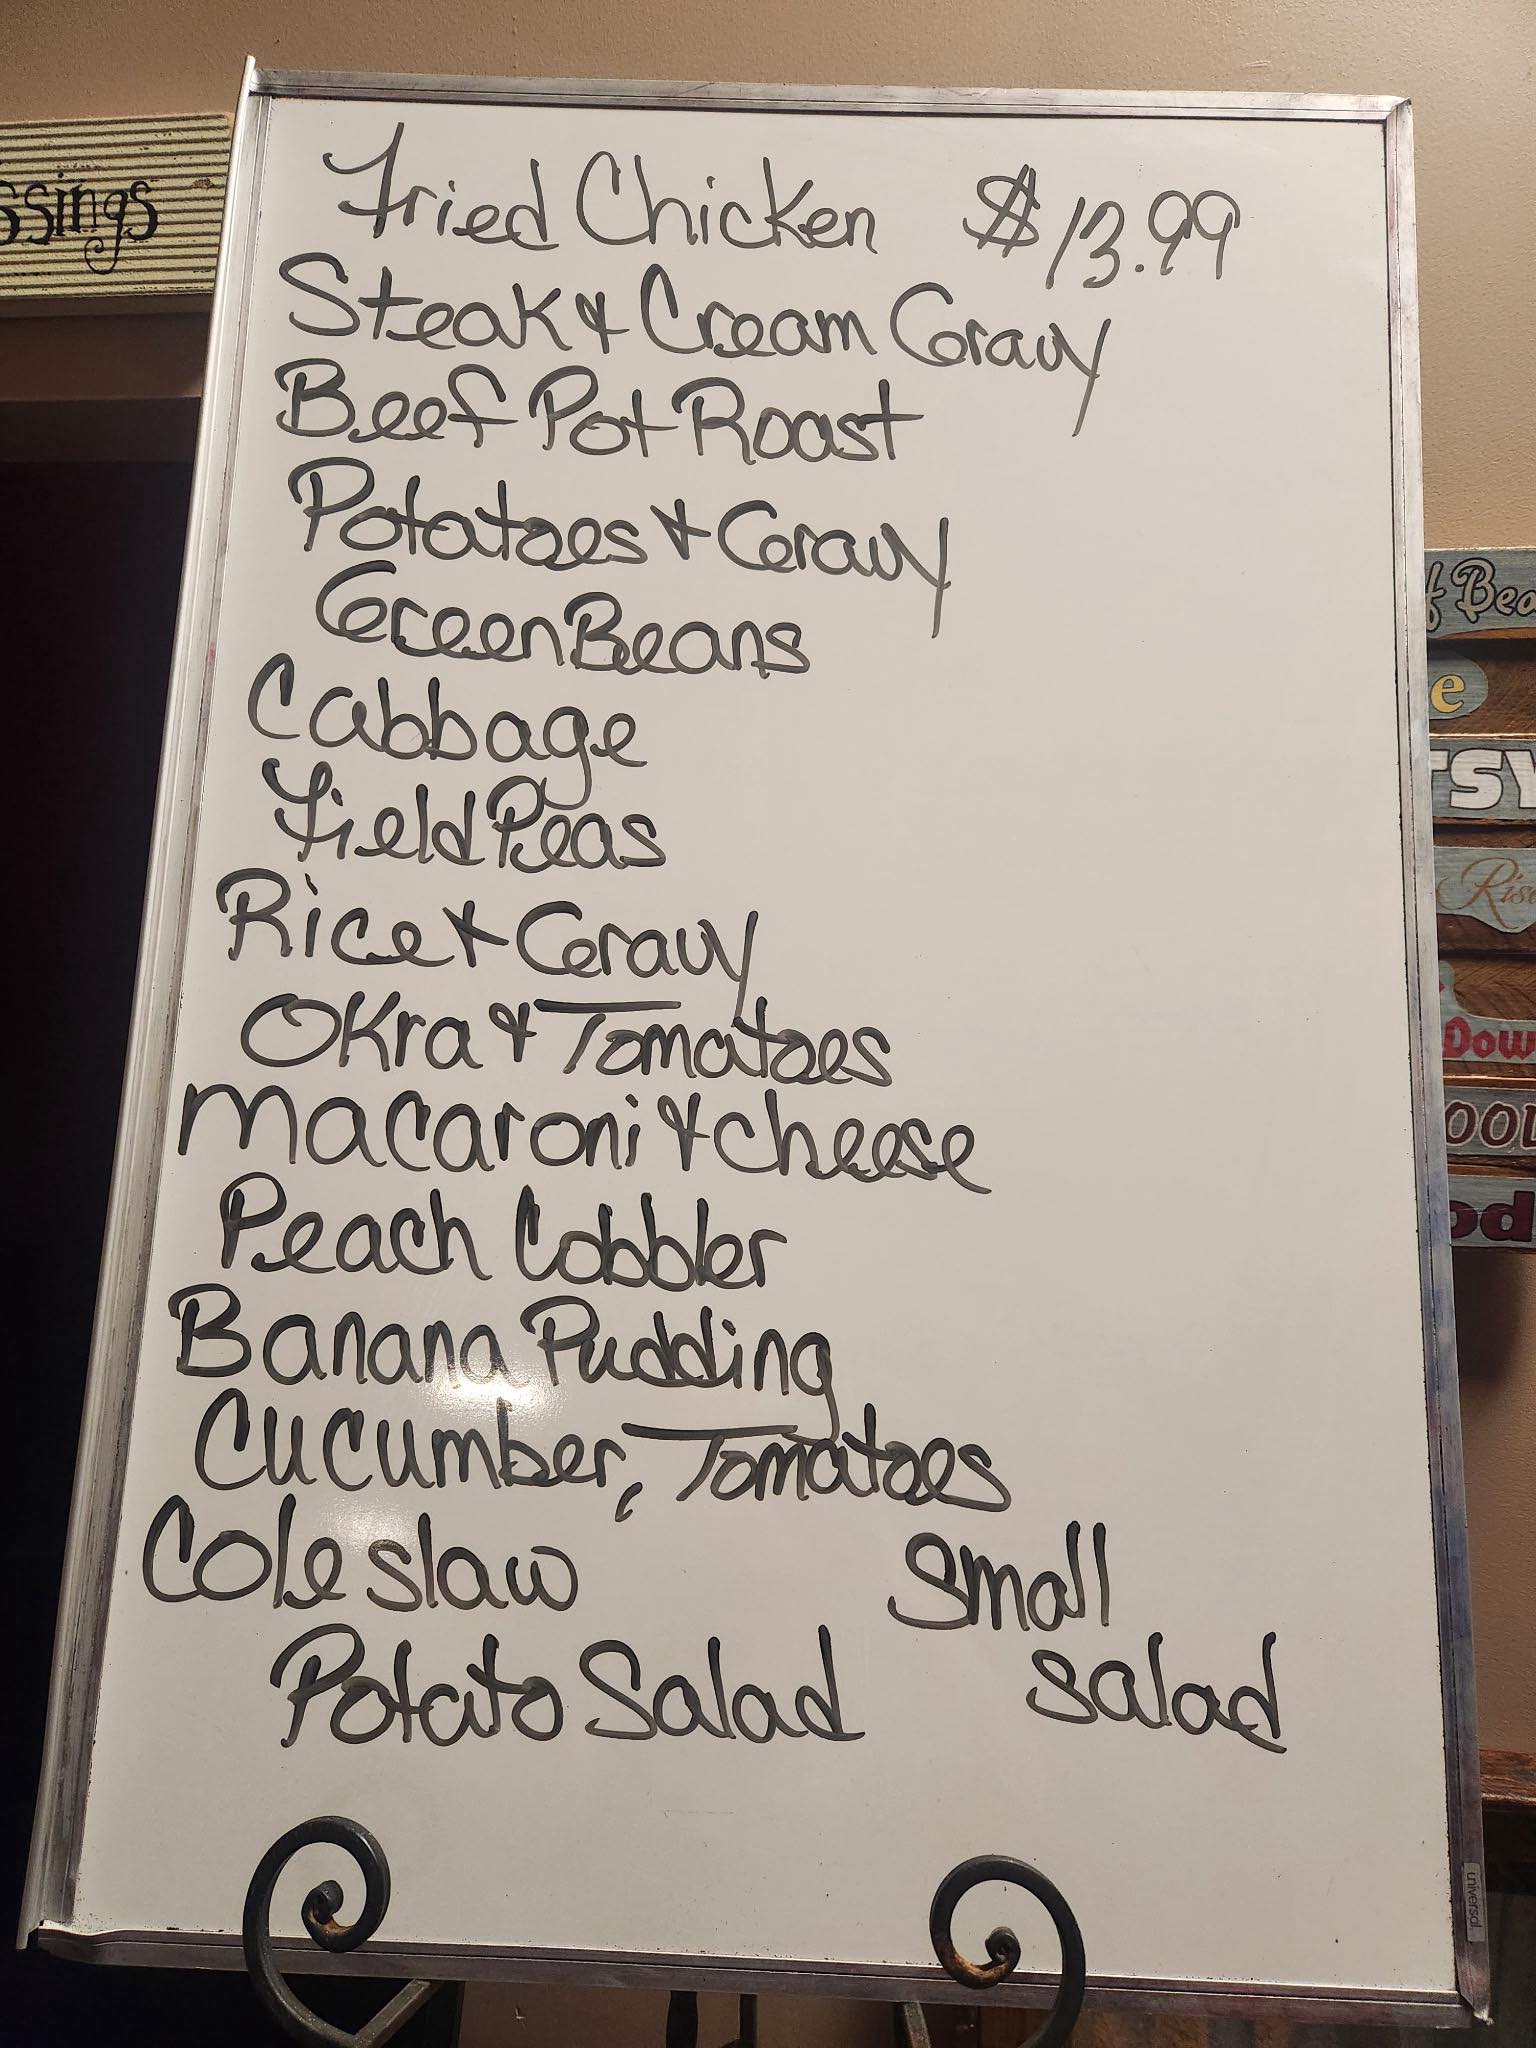 ssings
Fried Chicken $13.99
Steak & Cream Gravy
Beef Pot Roast
Potatoes & Gravy
Green Beans
Cabbage
Field Peas
Rice & Gravy
Okra & Tomatoes
Macaroni & cheese
Peach Cobbler
Banana Pudding
Cucumber, Tomatoes
Coleslaw
small
Potato Salad
salad
f Bea
e
TSY
Rise
Down
od
universal